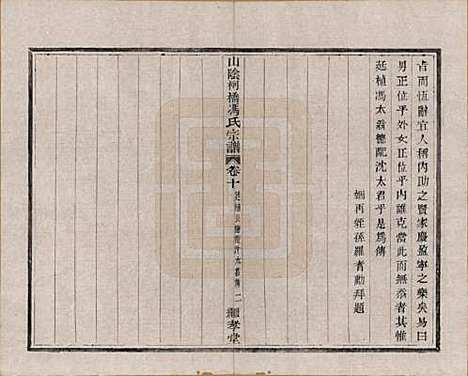 旨而恆辭宜人稱內助之賢家慶盈寧之樂矣易曰
男正位乎外女正位乎內誰克當此而無忝者其惟
延植馮太翁德配沈太君乎是爲傳
姻再姪孫羅 勳拜題
山陰柯橋馮氏宗譜
卷十
二
孝堂